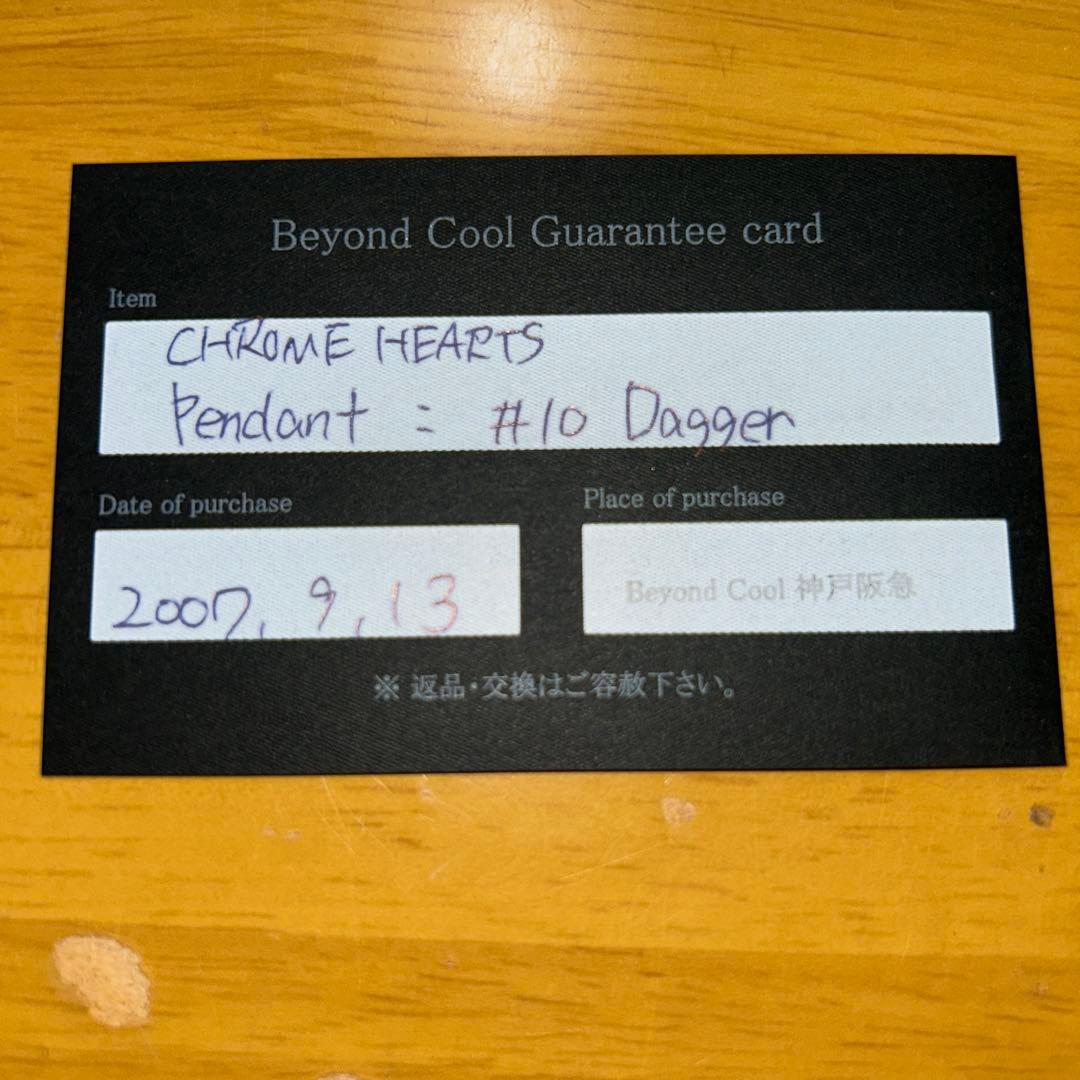 Beyond Cool Guarantee card
Item
CHROME HEARTS
Pendant : #10 Dagger
Date of purchase
Place of purchase
2007. 9. 13
Beyond Cool 神戸阪急
※ 返品・交換はご容赦下さい。